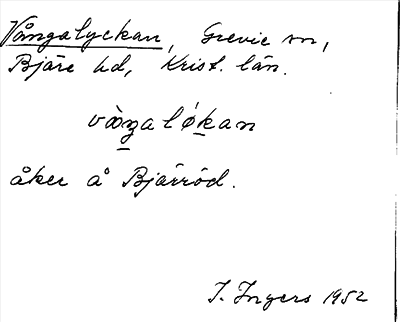 Vångalyckan, Grevie sn,
Bjäre hd, Krist. län.
vòŋaløkan
åker å Bjärröd.
I. Ingers 1952